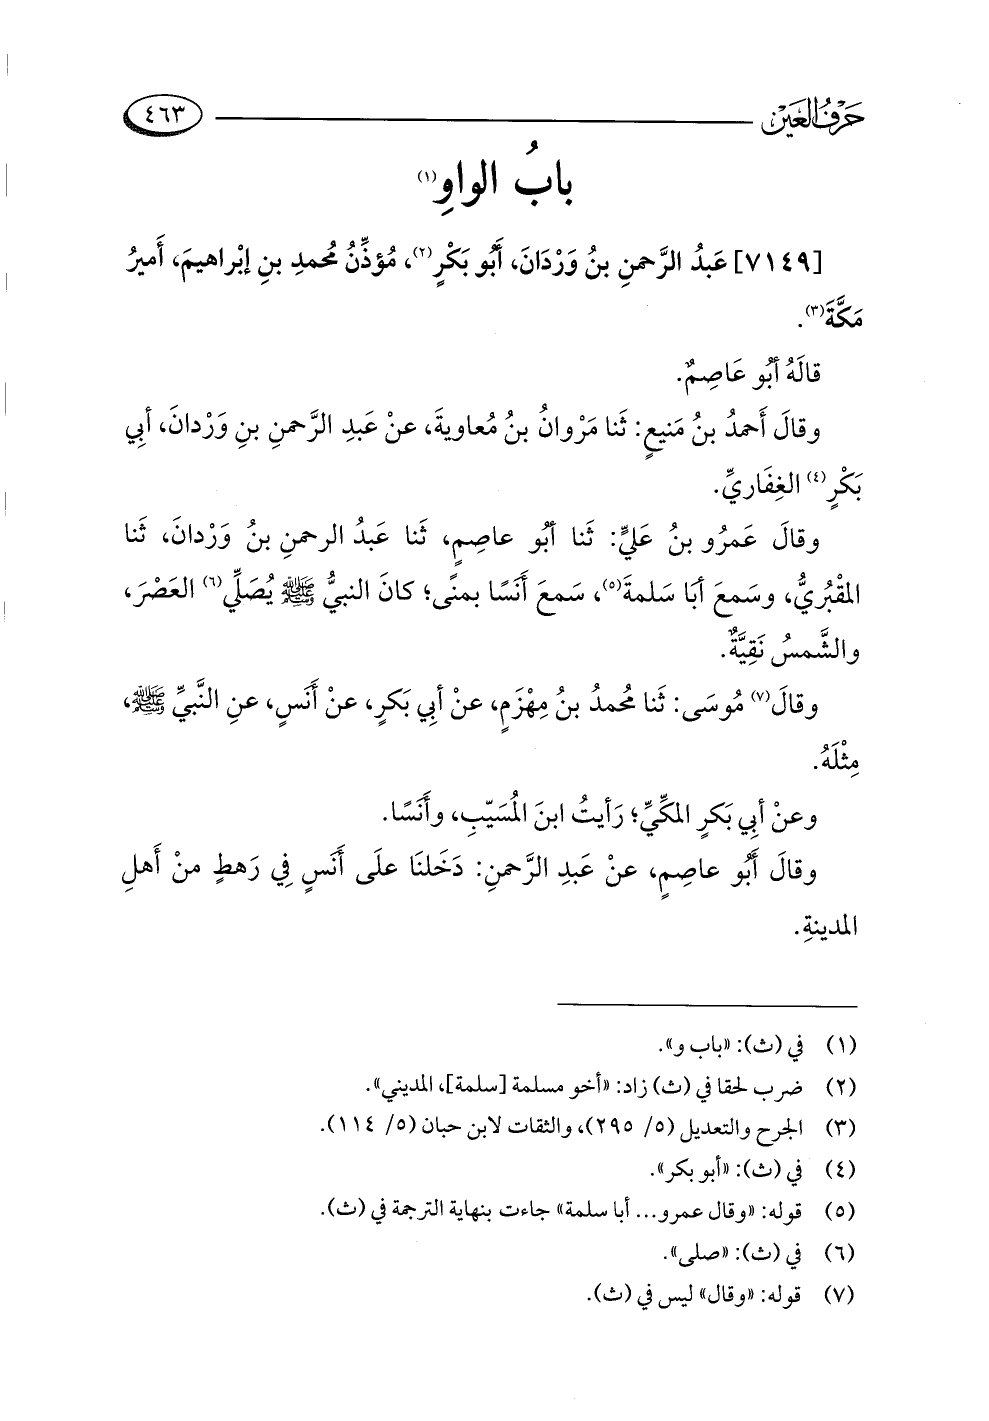 حَرْفُ العَيْن
٤٦٣
بابُ الواوِ(١)
[٧١٤٩] عَبدُ الرَّحمنِ بنُ وَرْدَانَ، أَبُو بَكْرٍ(٢)، مُؤذِّنُ مُحمدِ بنِ إبْراهيمَ، أَميرُ
مَكَّةَ(٣).
قالَهُ أَبُو عَاصِمٌ.
وقالَ أَحمدُ بنُ مَنيعٍ: ثَنا مَرْوانُ بنُ مُعاويةَ، عنْ عَبدِ الرَّحمنِ بنِ وَرْدانَ، أبي
بَكْرٍ(٤) الغِفَاريِّ.
وقالَ عَمرُو بنُ عَليٍّ: ثَنا أبُو عاصِمٍ، ثَنا عَبدُ الرحمنِ بنُ وَرْدانَ، ثَنا
المَقْبُريُّ، وسَمعَ أبَا سَلمةَ(٥)، سَمعَ أَنَسًا بمنًى؛ كانَ النبيُّ ﷺ يُصَلِّي(٦) العَصْرَ،
والشَّمسُ نَقِيَّةٌ.
وقالَ(٧) مُوسَى: ثَنا مُحمدُ بنُ مِهْزَمٍ، عنْ أبي بَكرٍ، عنْ أَنَسٍ، عنِ النَّبيِّ ﷺ،
مِثْلَهُ.
وعنْ أبي بَكرٍ المكِّيِّ؛ رَأيتُ ابنَ المُسَيّبِ، وأَنَسًا.
وقالَ أَبُو عاصِمٍ، عنْ عَبدِ الرَّحمنِ: دَخَلنَا علَى أَنَسٍ فِي رَهطٍ منْ أَهلِ
المدينةِ.
(١) في (ث): «باب و».
(٢) ضرب لحقا في (ث) زاد: «أخو مسلمة [سلمة]، المديني».
(٣) الجرح والتعديل (٥/ ٢٩٥)، والثقات لابن حبان (٥/ ١١٤).
(٤) في (ث): «أبو بكر».
(٥) قوله: «وقال عمرو... أبا سلمة» جاءت بنهاية الترجمة في (ث).
(٦) في (ث): «صلى».
(٧) قوله: «وقال» ليس في (ث).